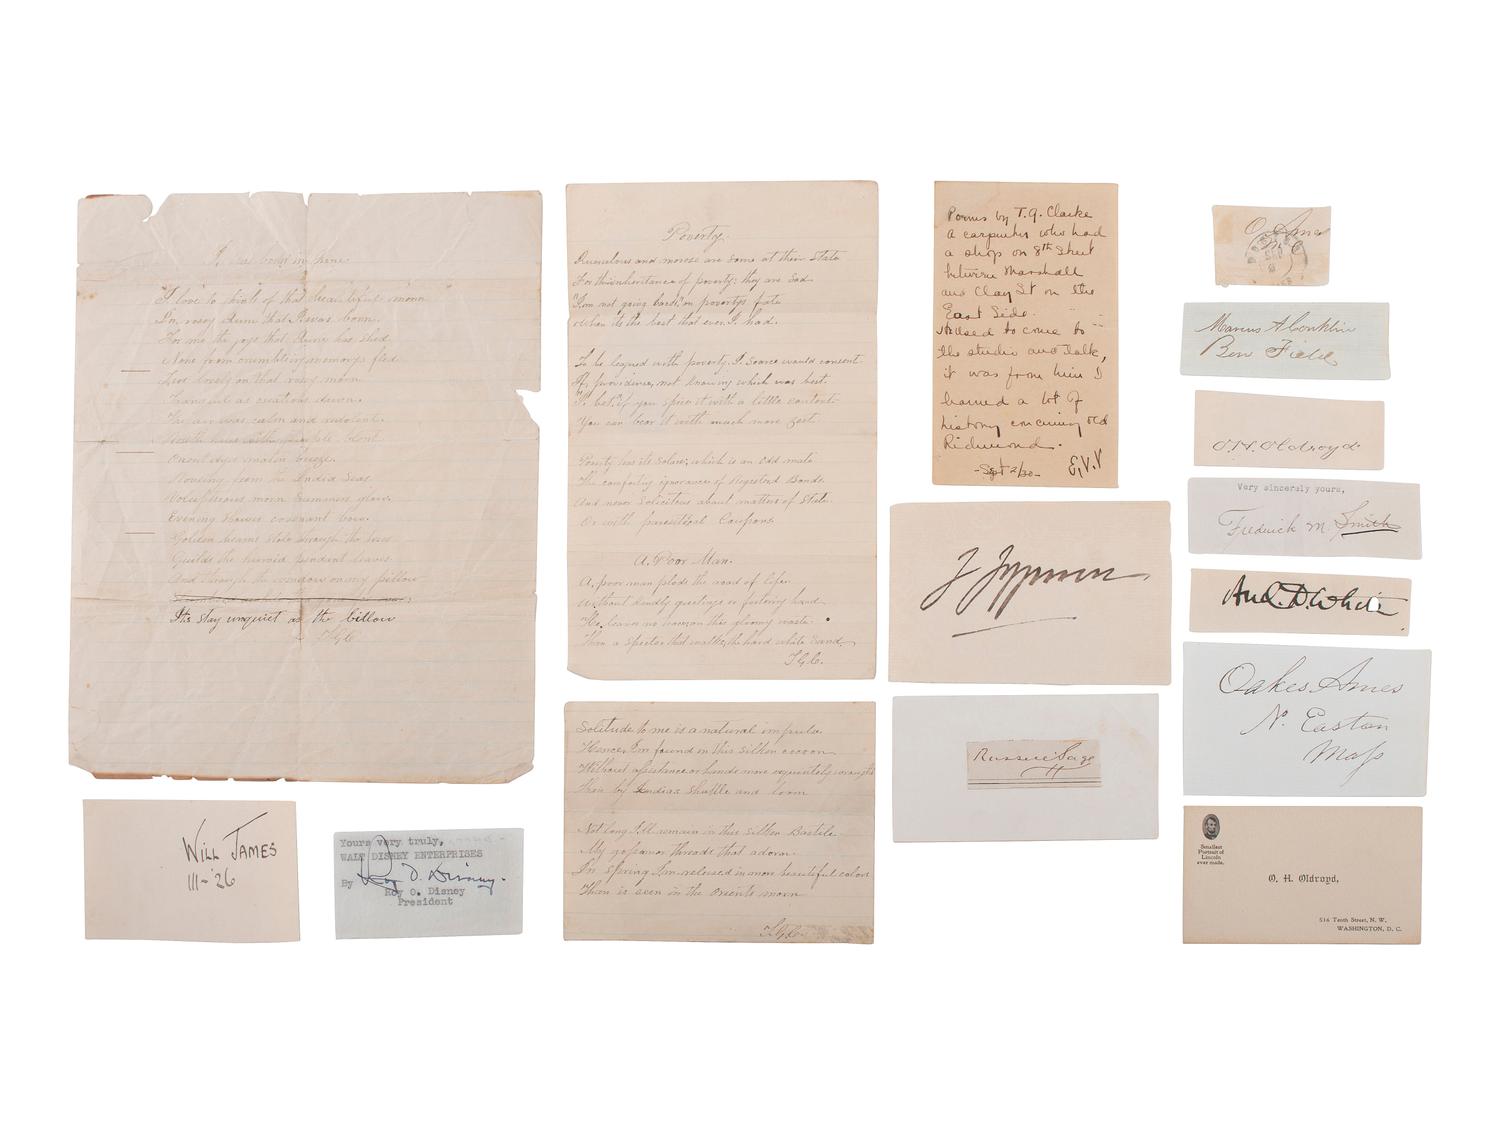 I love to think of that beautiful morn
I'm rosey June that I was born.
For me the joys that June has shed
None from crumbling memorys fled
Less lovely on that rosey morn
Tranquil as creations dawn.
The air was calm and
Voluptuous morn Summers glow.
Evening Venus covenant bow.
Golden beams stole through the trees
Guilds the pendent leaves
And through the window on my pillow
Its stay unquiet as the billow
TGC
Poverty.
Querulous and morose are some at their State
For th'inheritance of poverty: they are Sad
"I'm not going back," on povertys fate
its the best that ever I had.
To be legued with poverty I scarce would consent
Of providence, not knowing which was best.
"I bet" if you spice it with a little content
You can bear it with much more zest.
Poverty has its Solace, which is an Odd mate
The comforting ignorance of Registerd Bonds.
And never Solicitous about matters of State
Or with parasitical Coupons
A. Poor Man.
A, poor man plods the road of life.
Without kindly greetings or fostering hand
He leaves no trace on this gloomy waste.
Than a specter that walks, the hard white Sand.
T.G.C.
Solitude to me is a natural impulse
Hence, I'm found in this silken cocoon
Without assistance or hands more exquisitely wrought
Than by Indias Shuttle and loom
Not long I'll remain in this silken Bastile
My gossamer threads that adorn.
In Spring I'm released in more beautiful colors
Than is seen in the orients morn
T.G.C.
Poems by T. G. Clarke
a carpenter who had
a shop on 8th Street
between Marshall
and Clay St on the
East Side.
He used to come to
the studio and talk,
it was from him I
learned a lot of
history concerning old
Richmond.
- Sept 2/30 - E.V.V
Russell Sage
O. Ames
Marcus A Conklin
Ben Field
O.H. Oldroyd
Very sincerely yours,
Frederick M. Smith
And. D. White
Oakes Ames
No. Easton
Mass
Smallest
Portrait of
Lincoln
ever made.
O. H. Oldroyd,
516 Tenth Street, N. W.
WASHINGTON, D. C.
WILL JAMES
III-'26
Yours very truly,
WALT DISNEY ENTERPRISES
By Roy O. Disney
Roy O. Disney
President